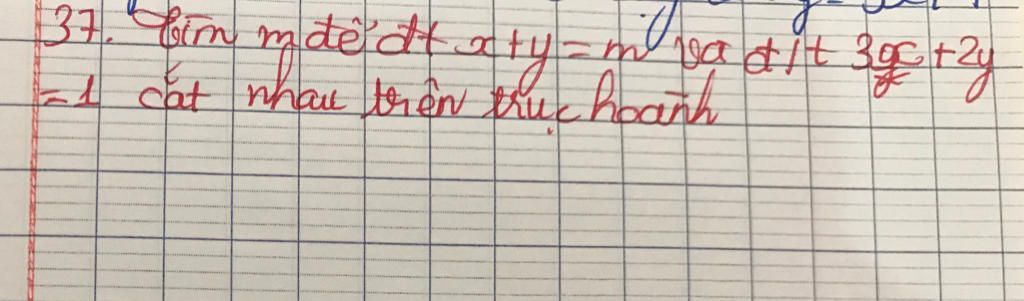 37. Tìm m để đt x+y=m và đ/t 3x+2y
=1 cắt nhau trên trục hoành